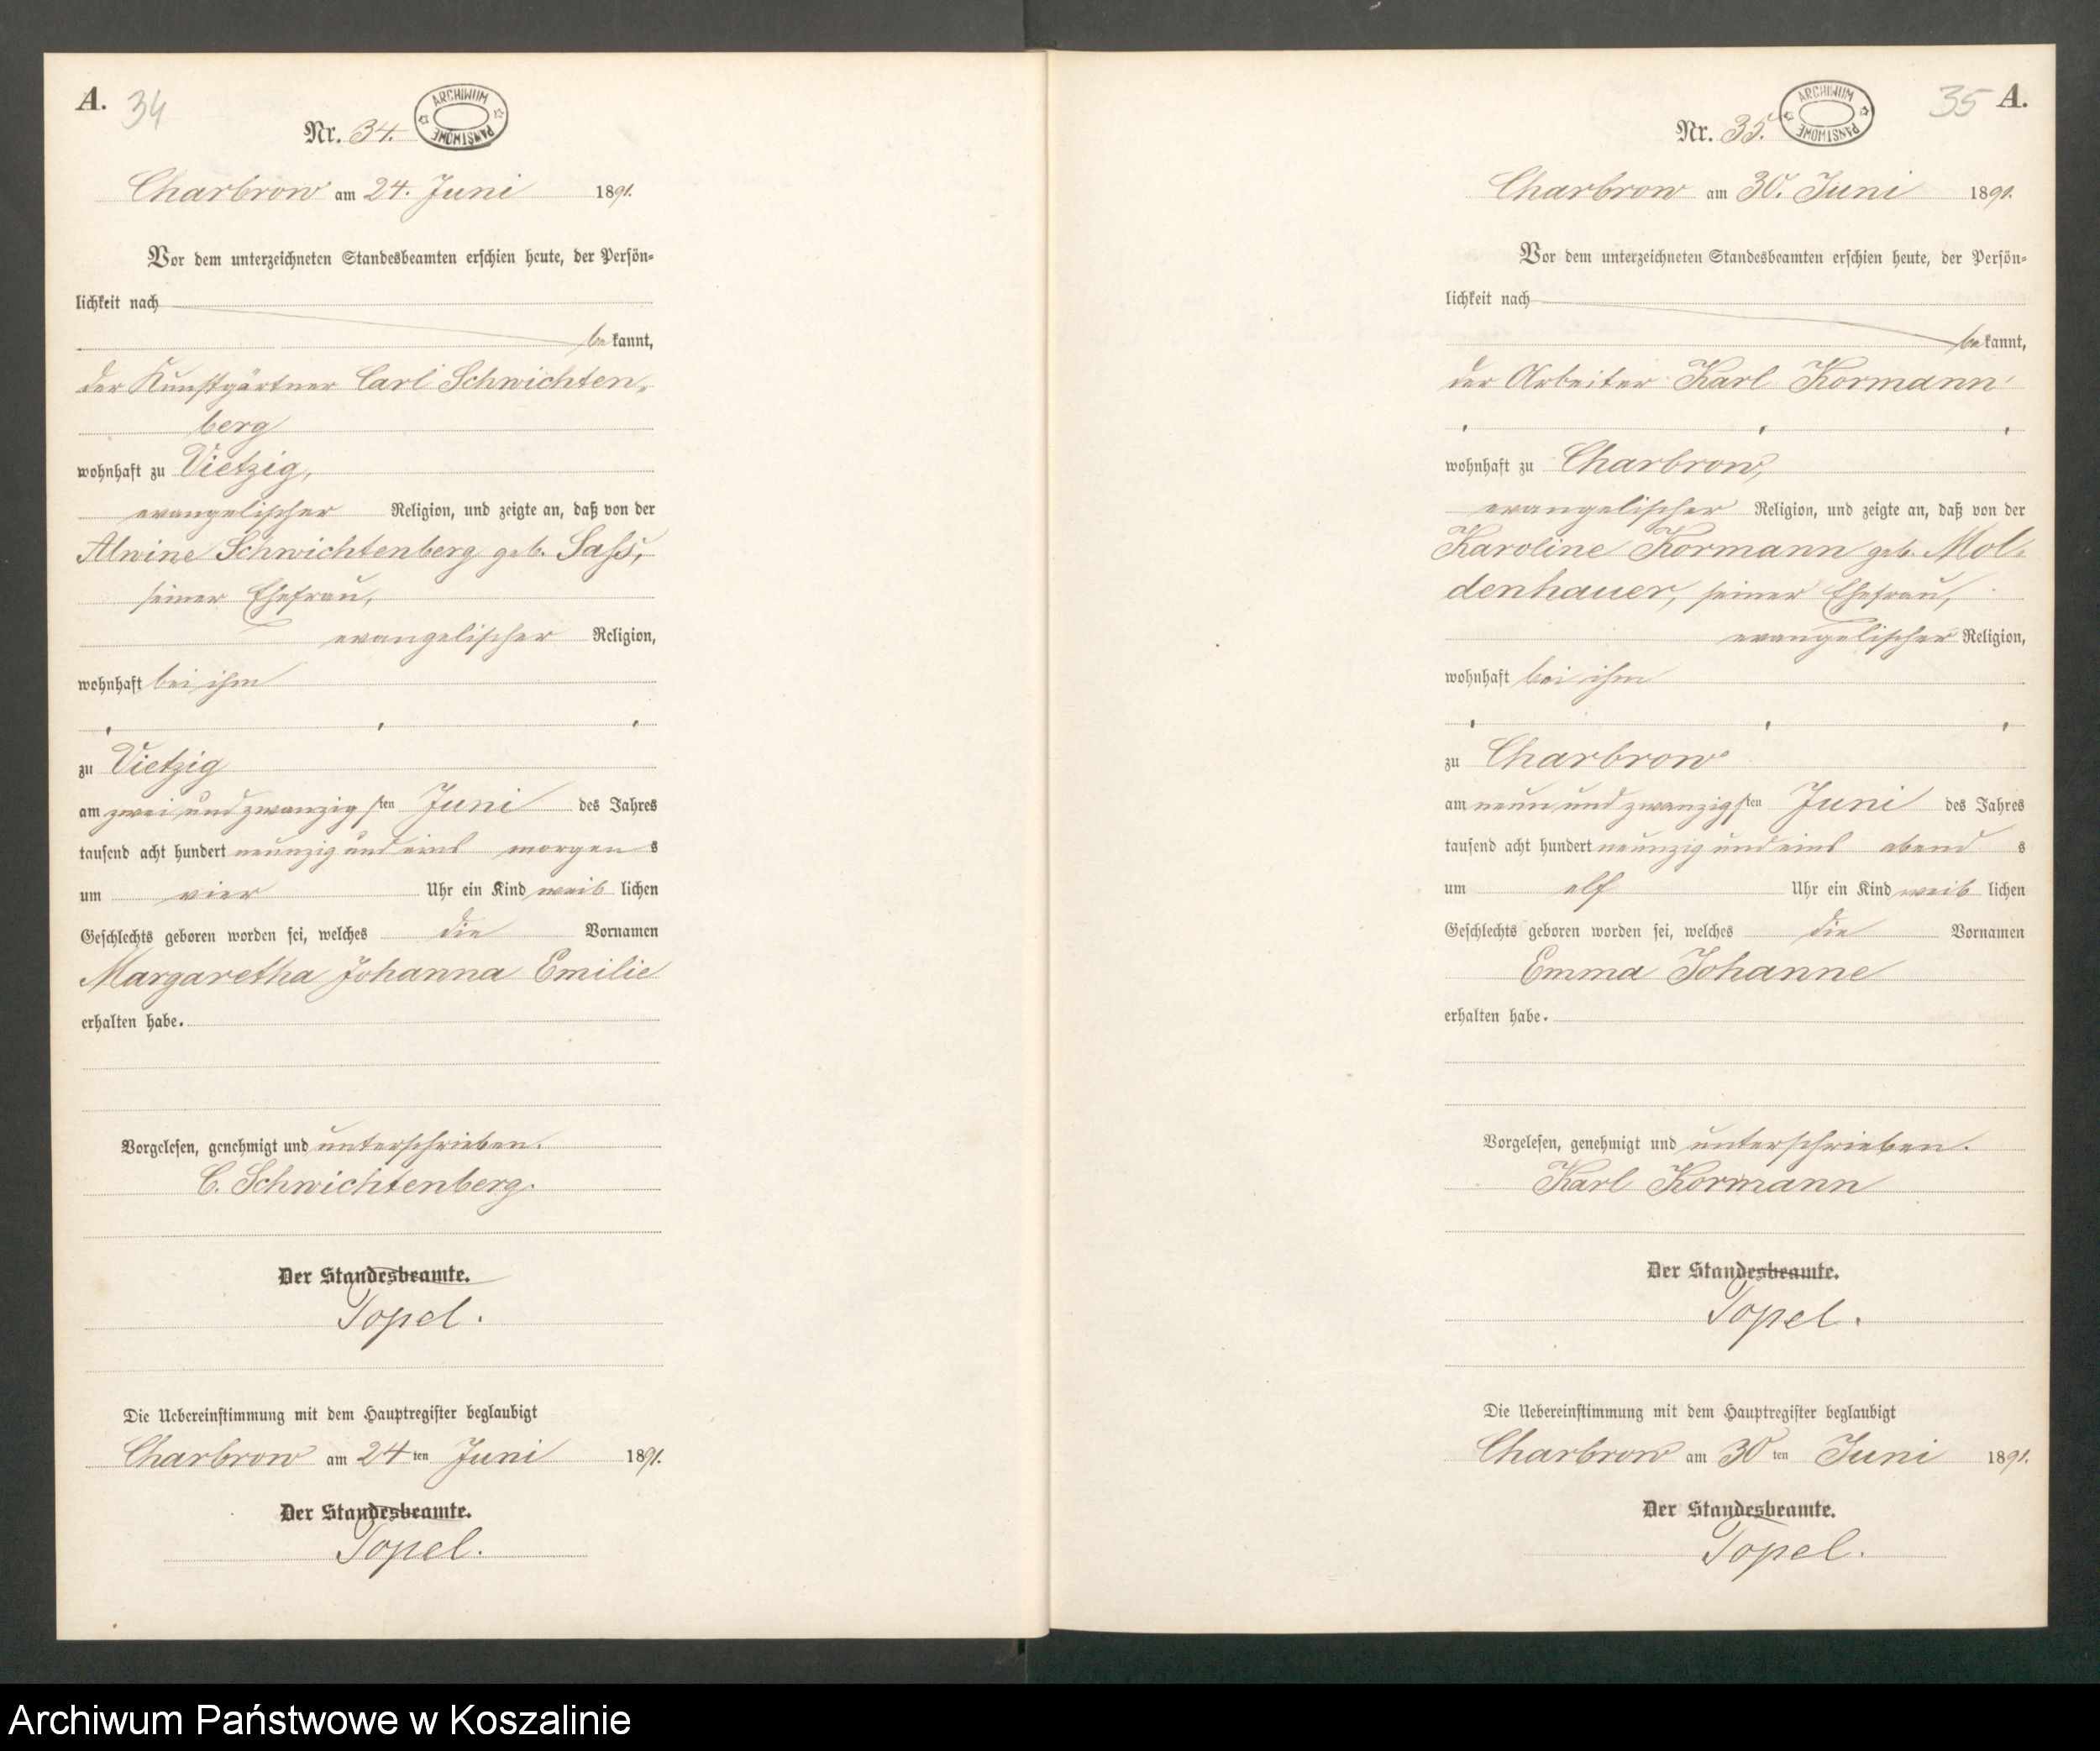 A. 34
Nr. 34.
ARCHIWUM PAŃSTWOWE
Charbrow am 24. Juni 1891.
Vor dem unterzeichneten Standesbeamten erschien heute, der Persön-
lichkeit nach
bekannt,
der Kunstgärtner Carl Schwichten-
berg
wohnhaft zu Vietzig,
evangelischer Religion, und zeigte an, daß von der
Alwine Schwichtenberg geb. Sass,
seiner Ehefrau,
evangelischer Religion,
wohnhaft bei ihm
zu Vietzig
am zwei und zwanzigsten Juni des Jahres
tausend acht hundert neunzig und eins morgens
um vier Uhr ein Kind weiblichen
Geschlechts geboren worden sei, welches die Vornamen
Margaretha Johanna Emilie
erhalten habe.
Vorgelesen, genehmigt und unterschrieben.
C. Schwichtenberg.
Der Standesbeamte.
Topel.
Die Uebereinstimmung mit dem Hauptregister beglaubigt
Charbrow am 24ten Juni 1891.
Der Standesbeamte.
Topel.
35 A.
Nr. 35.
ARCHIWUM PAŃSTWOWE
Charbrow am 30. Juni 1891.
Vor dem unterzeichneten Standesbeamten erschien heute, der Persön-
lichkeit nach
bekannt,
der Arbeiter Karl Kormann
wohnhaft zu Charbrow,
evangelischer Religion, und zeigte an, daß von der
Karoline Kormann geb. Mol-
denhauer, seiner Ehefrau,
evangelischer Religion,
wohnhaft bei ihm
zu Charbrow
am neun und zwanzigsten Juni des Jahres
tausend acht hundert neunzig und eins abends
um elf Uhr ein Kind weiblichen
Geschlechts geboren worden sei, welches die Vornamen
Emma Johanne
erhalten habe.
Vorgelesen, genehmigt und unterschrieben.
Karl Kormann
Der Standesbeamte.
Topel.
Die Uebereinstimmung mit dem Hauptregister beglaubigt
Charbrow am 30ten Juni 1891.
Der Standesbeamte.
Topel.
Archiwum Państwowe w Koszalinie